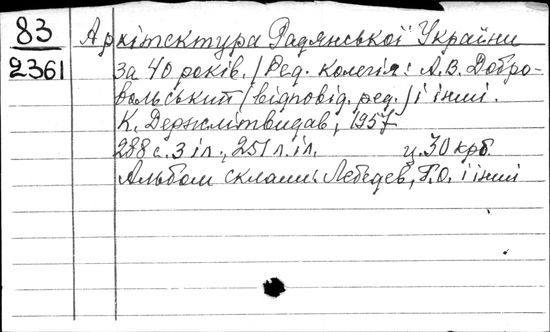 83 Архітектура Радянської України
2361 за 40 років. / Ред. колегія: А.В. Добро-
вольський / відповід. ред. / і інші.
К. Держлітвидав, 1957
288 с. з іл., 251 л. іл. ц. 30 крб.
Альбом склали: Лебедєв, Г.О. і інші